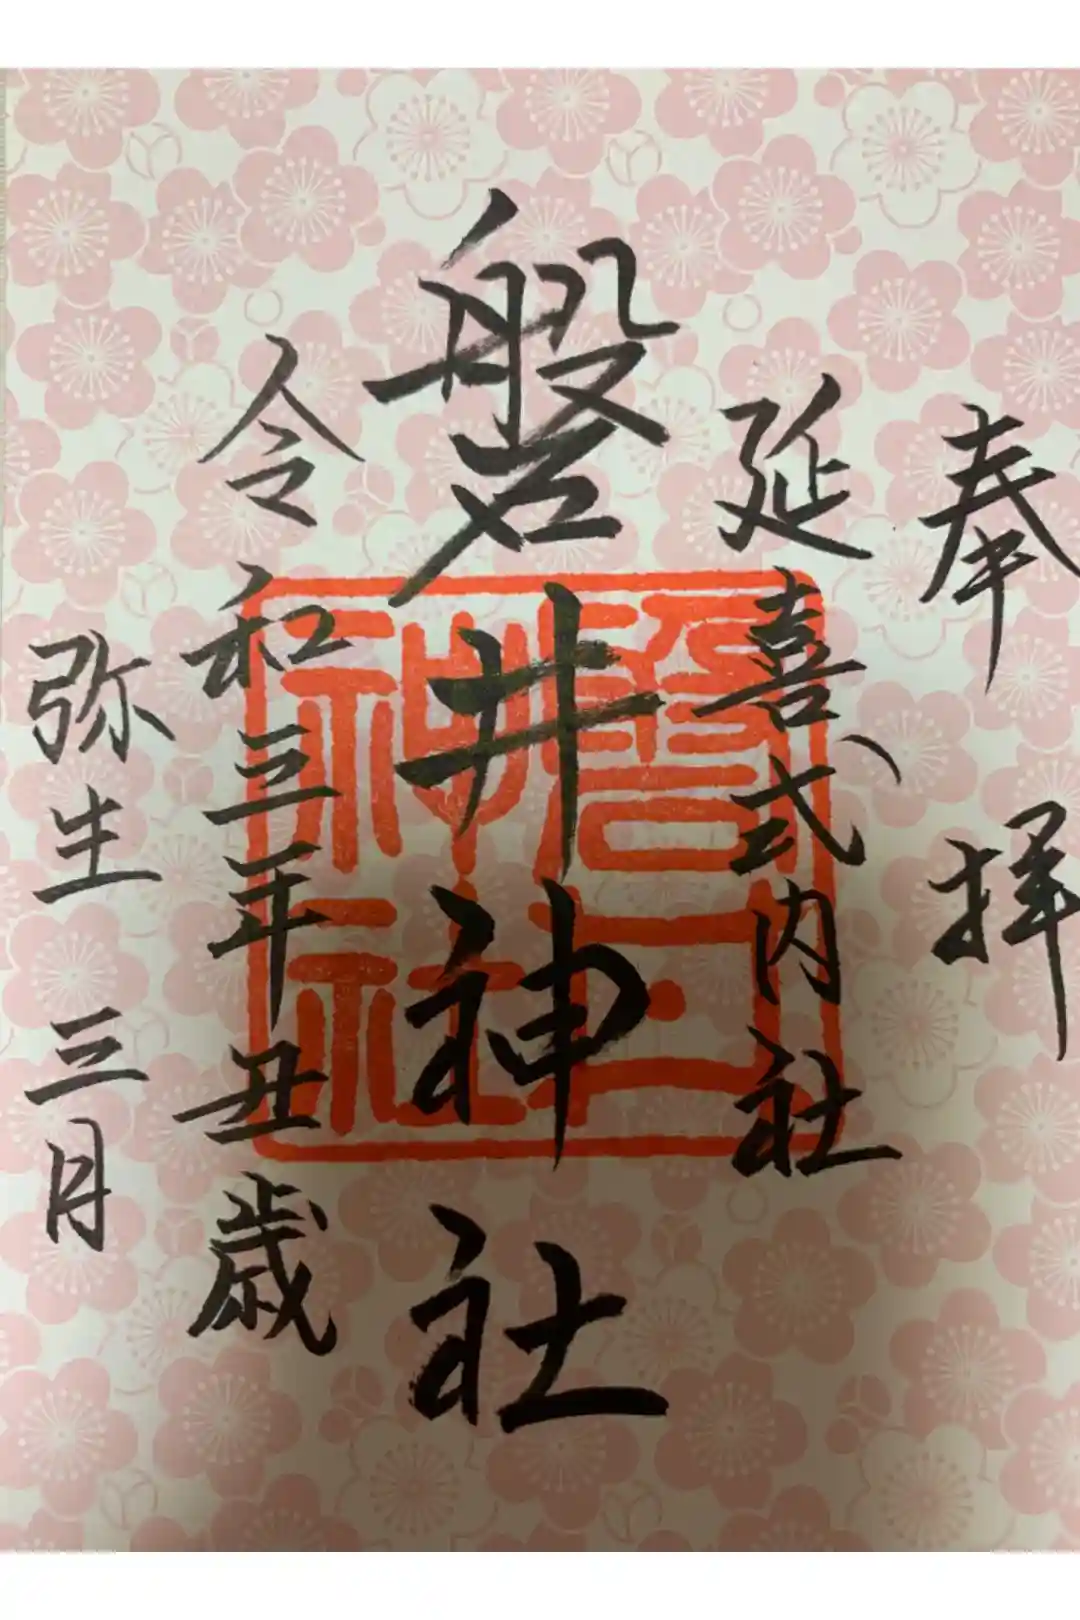 奉拝
延喜式内社
磐井神社
令和三年辛丑歳
弥生三月
磐井神社